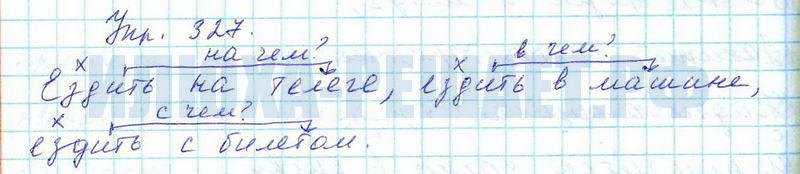 Упр. 327.
на чем? в чем?
Ездить на телеге, ездить в машине,
с чем?
ездить с билетом.